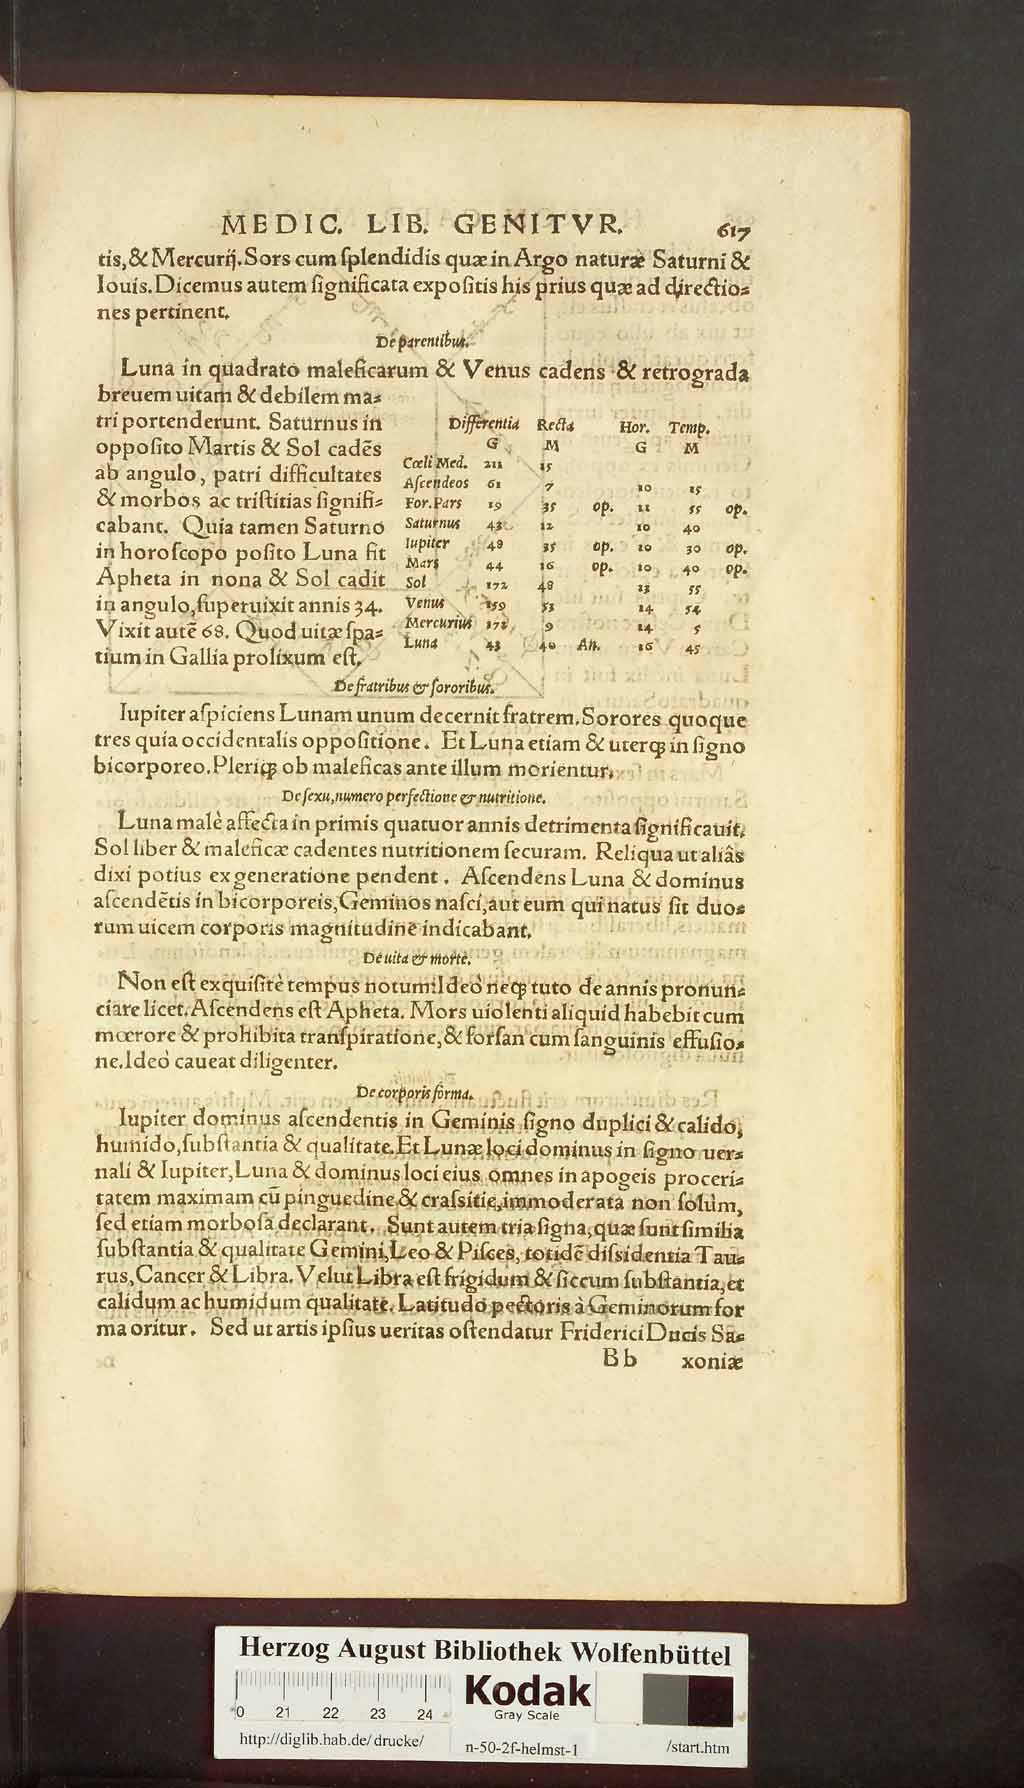 MEDIC. LIB. GENITVR. 617
tis, & Mercurij. Sors cum ſplendidis quæ in Argo naturæ Saturni &
Iouis. Dicemus autem ſignificata expoſitis his prius quæ ad directio⸗
nes pertinent.
De parentibus.
Luna in quadrato maleficarum & Venus cadens & retrograda
breuem uitam & debilem ma⸗
tri portenderunt. Saturnus in
oppoſito Martis & Sol cadẽs
ab angulo, patri difficultates
& morbos ac triſtitias ſignifi⸗
cabant. Quia tamen Saturno
in horoſcopo poſito Luna fit
Apheta in nona & Sol cadit
in angulo, ſuperuixit annis 34.
Vixit autẽ 68. Quod uitæ ſpa⸗
tium in Gallia prolixum eſt.
Differentia Recta Hor. Temp.
G M G M
Cœli Med. 211 15
Aſcendeos 61 7 10 15
For. Pars 19 35 op. 11 55 op.
Saturnus 43 12 10 40
Iupiter 48 35 op. 10 30 op.
Mars 44 16 op. 10 40 op.
Sol 172 48 13 55
Venus 159 53 14 54
Mercurius 172 9 14 5
Luna 43 40 An. 16 45
De fratribus & ſororibus.
Iupiter aſpiciens Lunam unum decernit fratrem. Sorores quoque
tres quia occidentalis oppoſitione. Et Luna etiam & uterqꝫ in ſigno
bicorporeo. Pleriqꝫ ob maleficas ante illum morientur.
De ſexu, numero perfectione & nutritione.
Luna malè affecta in primis quatuor annis detrimenta ſignificauit.
Sol liber & maleficæ cadentes nutritionem ſecuram. Reliqua ut aliâs
dixi potius ex generatione pendent. Aſcendens Luna & dominus
aſcendẽtis in bicorporeis, Geminos naſci, aut eum qui natus ſit duo⸗
rum uicem corporis magnitudinẽ indicabant.
De uita & morte.
Non eſt exquiſitè tempus notum: Ideò neqꝫ tuto de annis pronun⸗
ciare licet. Aſcendens eſt Apheta. Mors uiolenti aliquid habebit cum
mœrore & prohibita tranſpiratione, & forſan cum ſanguinis effuſio⸗
ne. Ideò caueat diligenter.
De corporis forma.
Iupiter dominus aſcendentis in Geminis ſigno duplici & calido,
humido, ſubſtantia & qualitate. Et Lunæ loci dominus in ſigno uer⸗
nali & Iupiter, Luna & dominus loci eius omnes in apogeis proceri⸗
tatem maximam cũ pinguedine & craſsitie, immoderata non ſolùm,
ſed etiam morboſa declarant. Sunt autem tria ſigna, quæ ſunt ſimilia
ſubſtantia & qualitate Gemini, Leo & Piſces, totidẽ diſsidentia Tau⸗
rus, Cancer & Libra. Velut Libra eſt frigidum & ſiccum ſubſtantia, et
calidum ac humidum qualitate. Latitudo pectoris à Geminorum for
ma oritur. Sed ut artis ipſius ueritas oſtendatur Friderici Ducis Sa⸗
Bb xoniæ
Herzog August Bibliothek Wolfenbüttel
0 21 22 23 24
Kodak
Gray Scale
http://diglib.hab.de/drucke/ n-50-2f-helmst-1 /start.htm